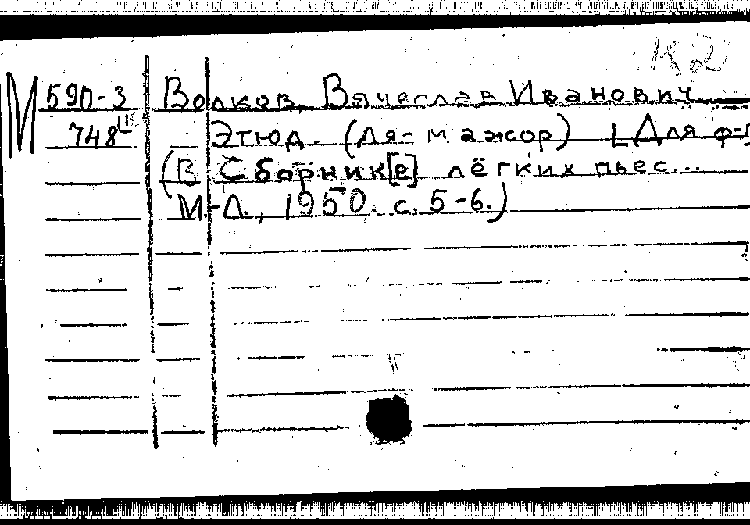 к2
М 590-3 Волков, Вячеслав Иванович
748 Этюд. (Ля-мажор) [Для ф-
(В Сборник[е] лёгких пьес...
М.-Л., 1950. с. 5-6.)